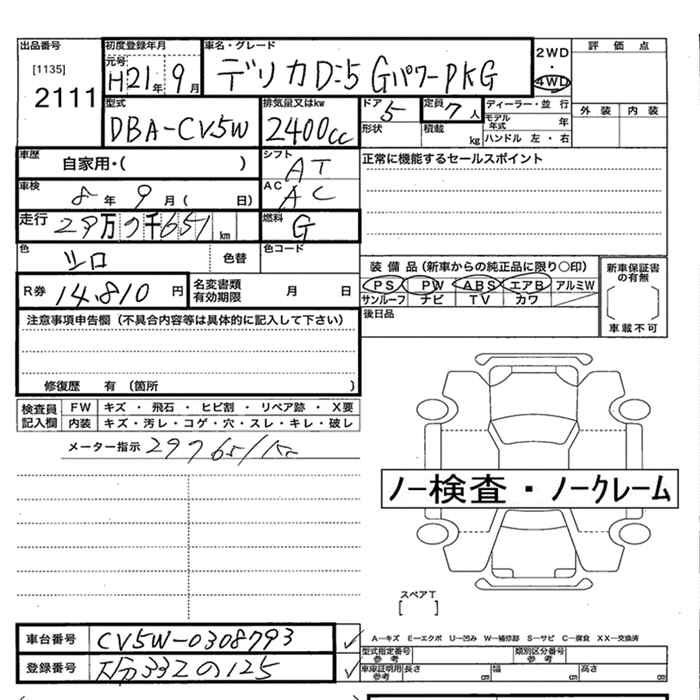 出品番号
[1135]
2111
初度登録年月
元号 H21年 9月
車名・グレード
デリカD:5 GパワーPKG
2WD
・
4WD
評価点
外装 内装
型式
DBA-CV5W
排気量又はkw
2400cc
ドア 5
定員 7人
形状
積載 kg
ディーラー・並行
モデル年式 年
ハンドル 左・右
車歴 自家用・( )
シフト AT
正常に機能するセールスポイント
車検 8年 9月( 日)
AC AC
走行 29万7千651km
燃料 G
色 シロ
色替
色コード
R券 14,810円
名変書類有効期限 月 日
装備品(新車からの純正品に限り○印)
PS PW ABS エアB アルミW
サンルーフ ナビ TV カワ
新車保証書の有無
[ ]
車載不可
後日品
注意事項申告欄(不具合内容等は具体的に記入して下さい)
修復歴 有(箇所 )
検査員記入欄
FW キズ・飛石・ヒビ割・リペア跡・X要
内装 キズ・汚レ・コゲ・穴・スレ・キレ・破レ
メーター指示 297651km
ノー検査・ノークレーム
スペアT
[ ]
車台番号 CV5W-0308793
登録番号 332の125
A―キズ E―エクボ U―凹み W―補修跡 S―サビ C―腐食 XX―交換済
型式指定番号 参考
類別区分番号 参考
車庫証明用参考 長さ 幅 高さ